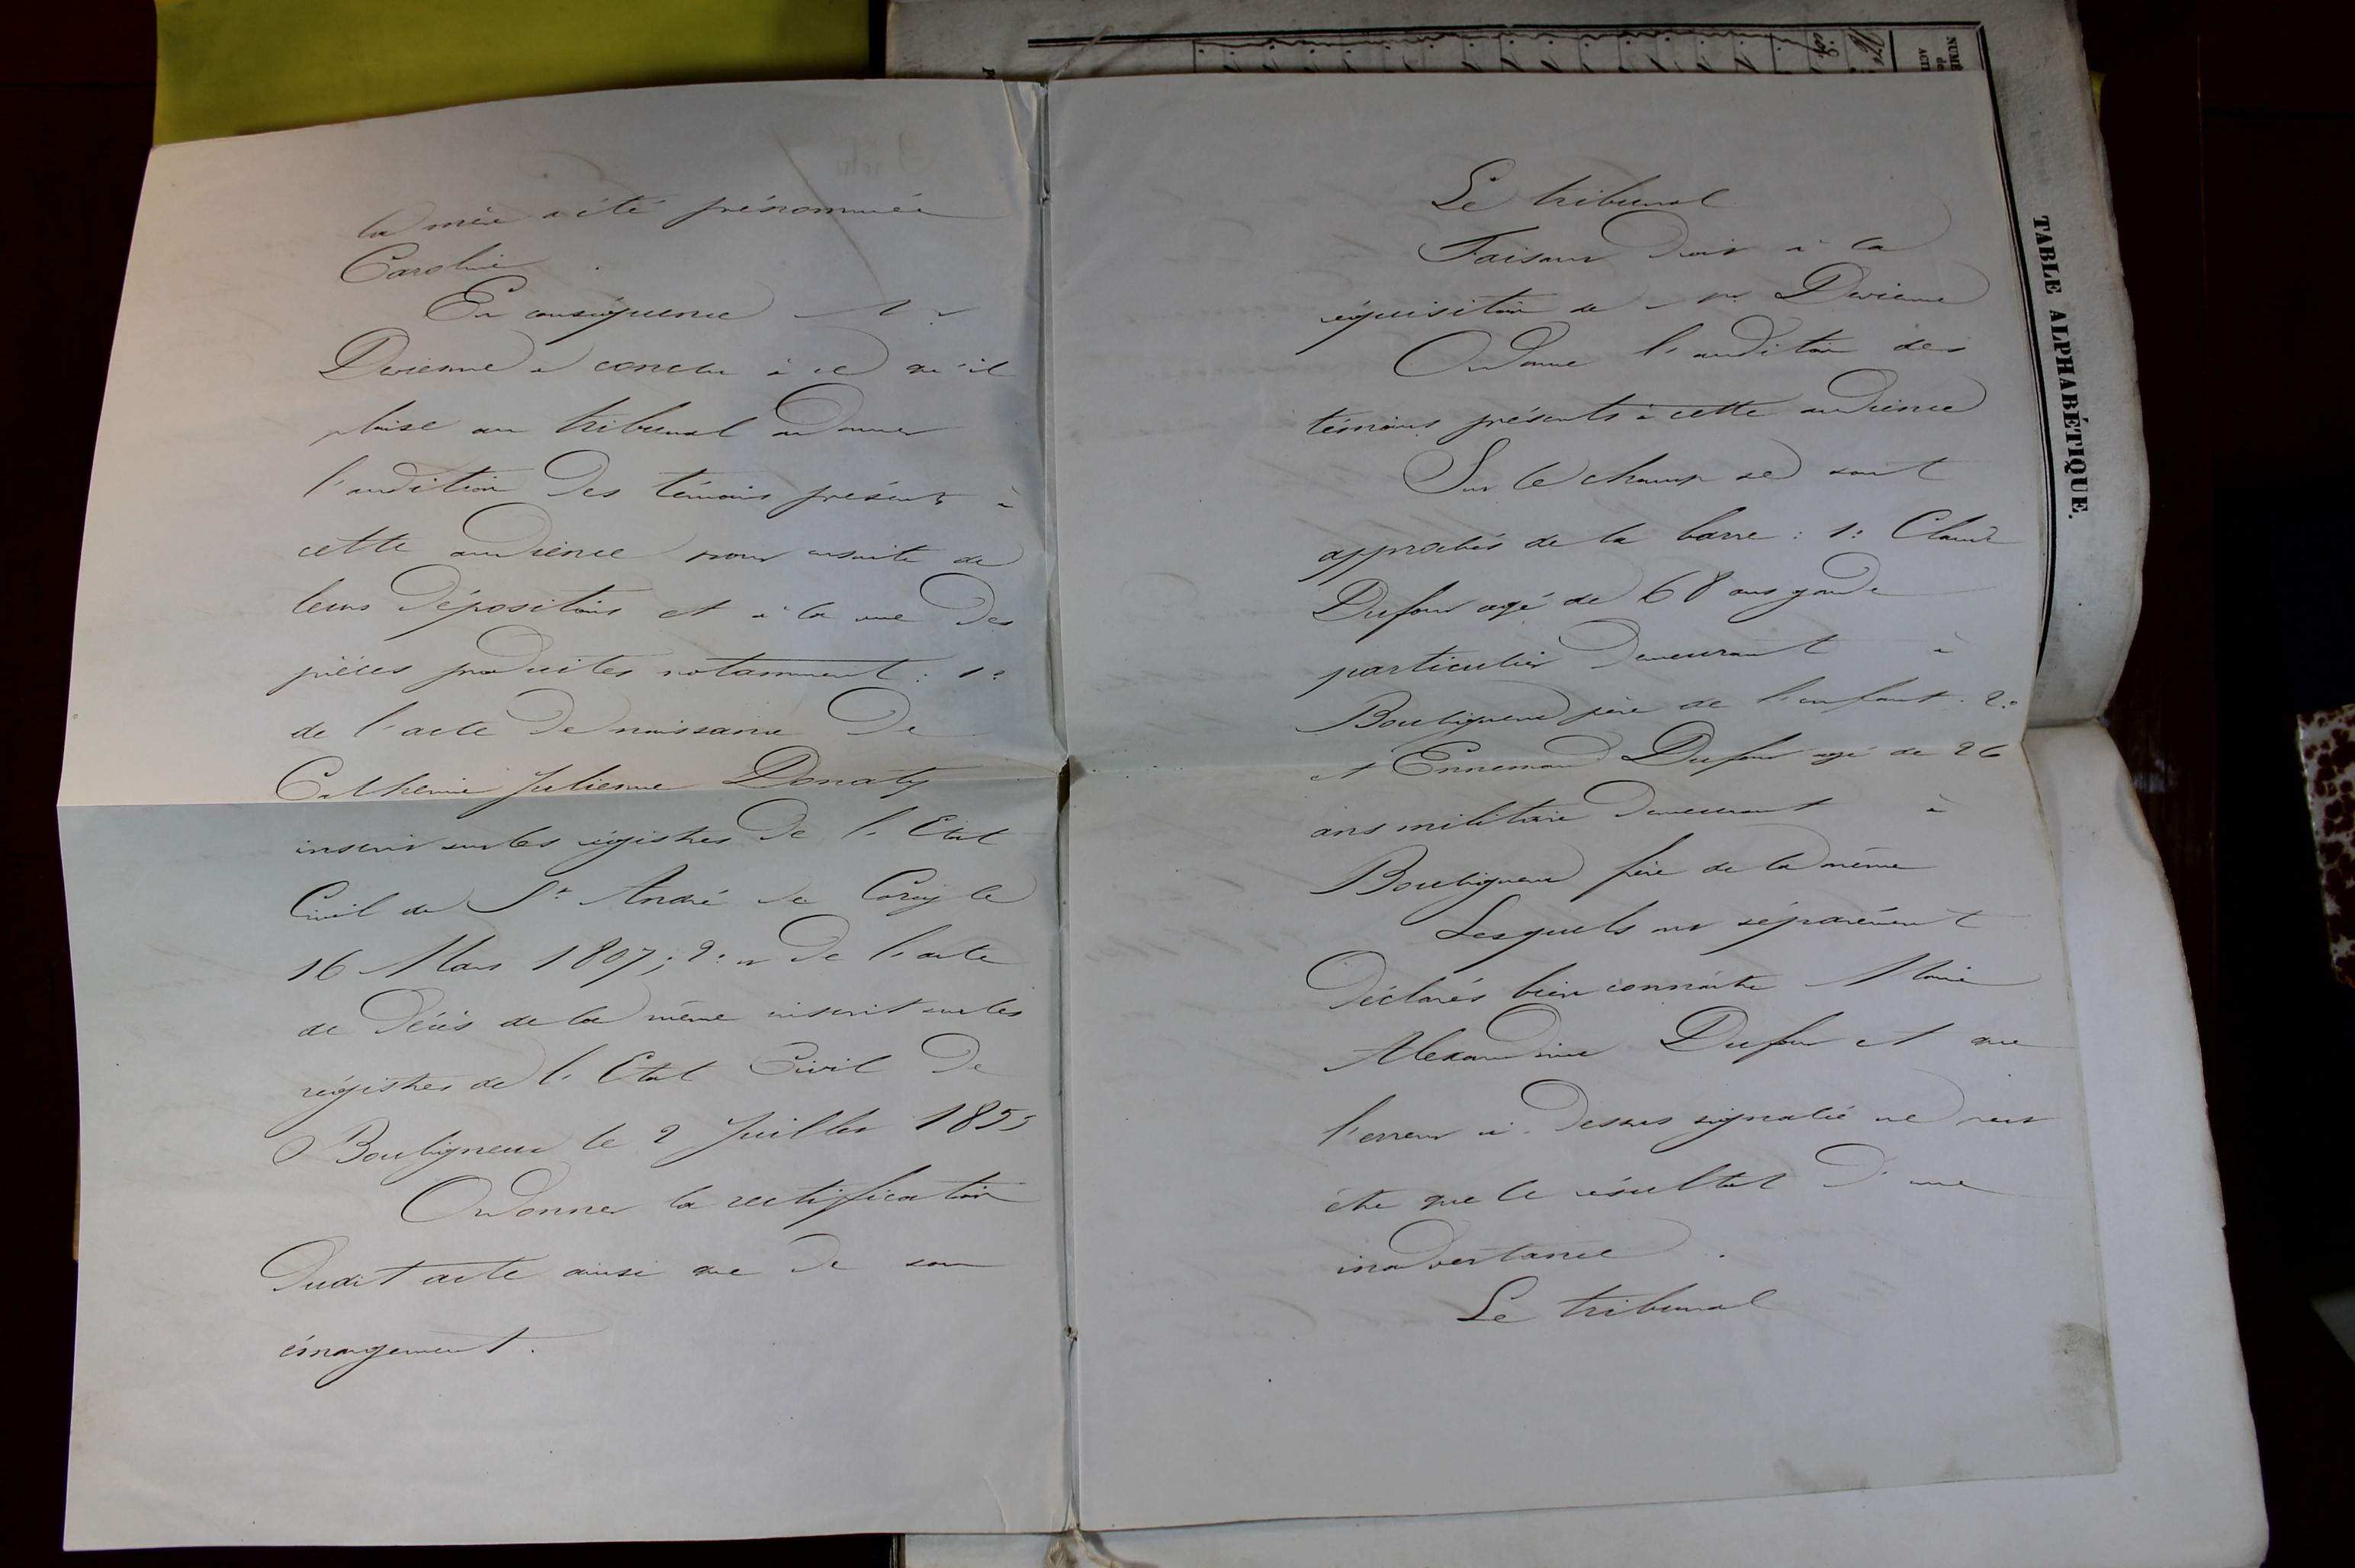 la mère a été prénommée
Caroline.
En conséquence Me
Devienne a conclu à ce qu'il
plaise au tribunal ordonner
l'audition des témoins présents à
cette audience pour ensuite de
leurs dépositions et à la vue des
pièces produites notamment : 1°
de l'acte de naissance de
Catherine Julienne Donaty
inscrit sur les régistres de l'Etat
Civil de St André de Corcy le
16 Mars 1807; 2° de l'acte
de décès de la même inscrit sur les
régistres de l'Etat Civil de
Bouligneux le 2 Juillet 1855
Ordonner la rectification
dudit acte ainsi que de son
émargement.
Le tribunal
Faisant droit à la
réquisition de Me Devienne
Ordonne l'audition des
témoins présents à cette audience
Sur le champ se sont
approchés de la barre : 1° Claude
Dufour agé de 68 ans garde
particulier demeurant à
Bouligneux père de l'enfant. 2°
et Ennemond Dufour agé de 26
ans militaire demeurant à
Bouligneux frère de la même
Lesquels ont séparément
déclarés bien connaitre Marie
Alexandrine Dufour et que
l'erreur ci-dessus signalée ne peut
être que le résultat d'une
inadvertance.
Le tribunal
TABLE ALPHABÉTIQUE.